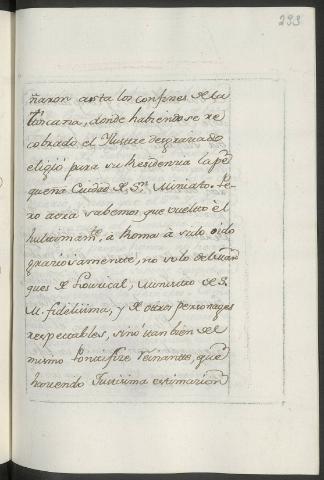 293
ñaron asta los confines de la
Toscana, donde habiendose re
cobrado el Ilustre desgraciado
eligió para su Residencia la pe
queña Ciudad de Sn. Miniato. Pe
ro aora sabemos que vuelto él
ultimamte. à Roma à sido oido
graciosamente, no solo del Mar
ques de Lourical, Ministro de S.
M. fidelisima, y de otros personages
respectables, sinó tambien del
mismo Pontifize Reinante, que
haviendo Justisima estimacion